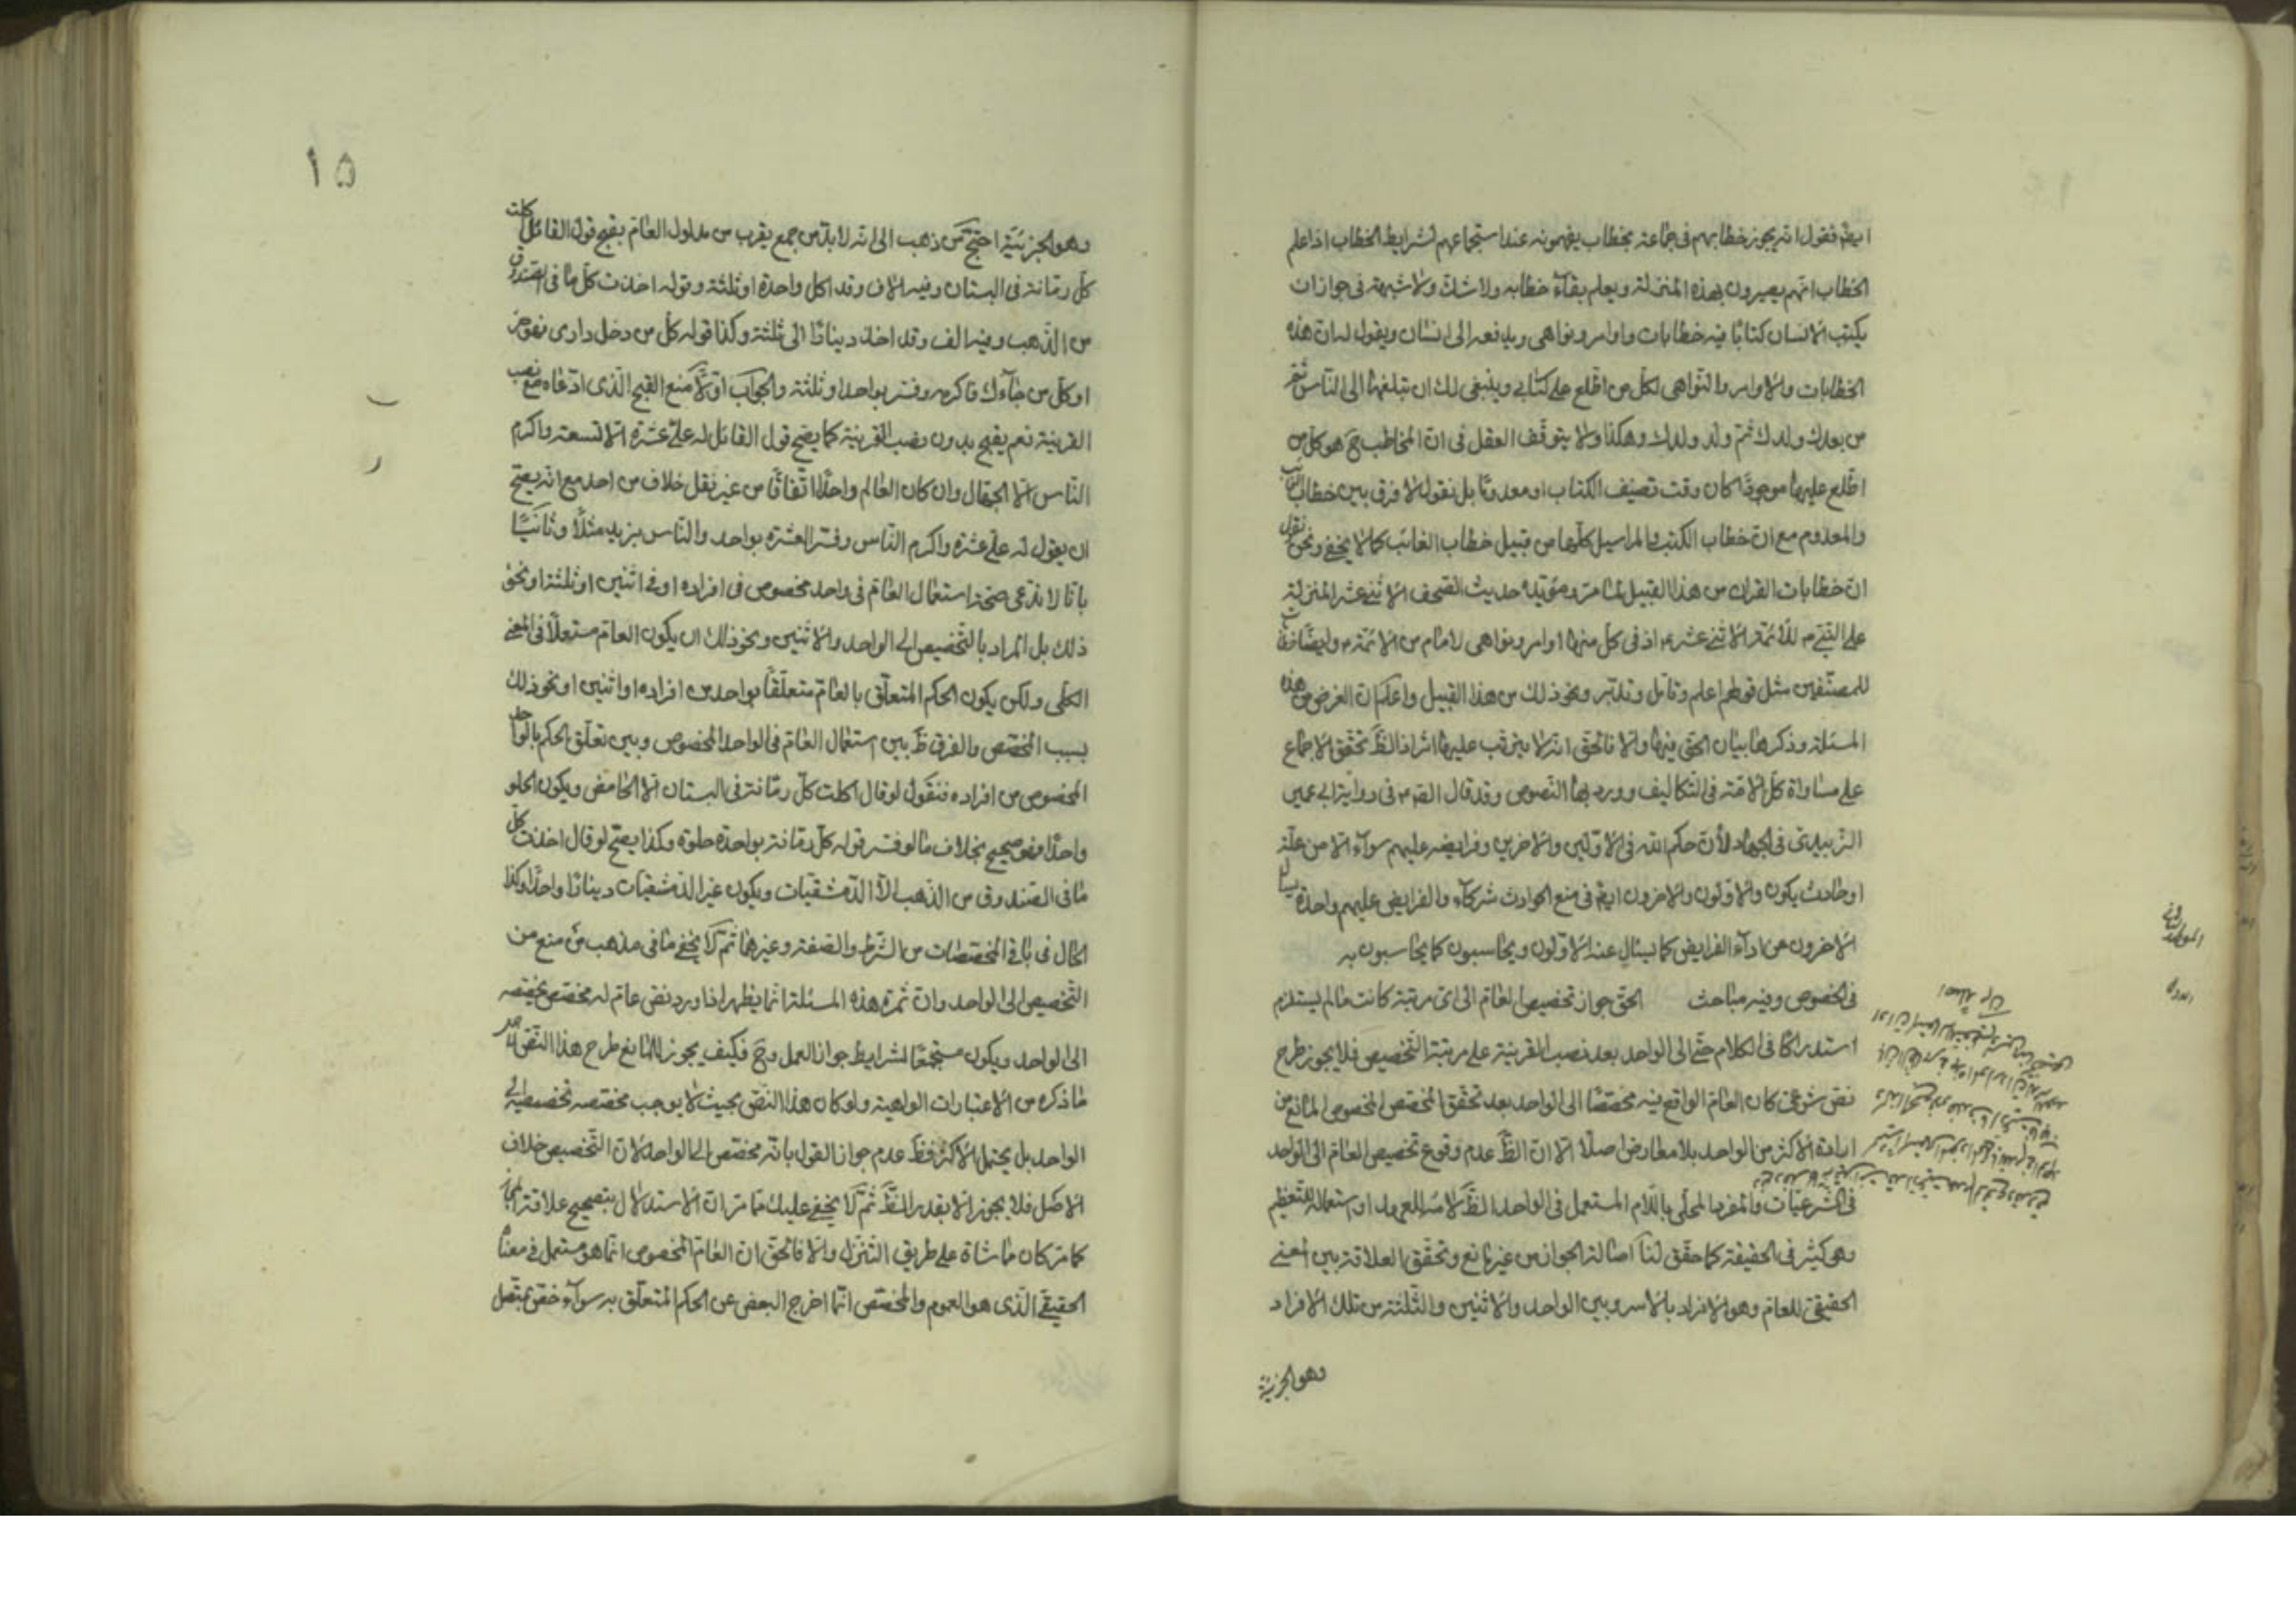 ايضا فنقول انه يجوز خطابهم فى جماعة بخطاب يفهمونه عند استجماعهم لشرايط الخطاب اذا علم
الخطاب انهم يصيرون بهذه المنزلة ويعلم بقاء خطابه ولا شك ولا شبهة فى جواز ان
يكتب الانسان كتابا فيه خطابات واوامر ونواهى ويدفعه الى انسان ويقول له ان هذه
الخطابات والاوامر والنواهى لكل من اطلع على كتابى وينبغى لك ان تبلغها الى الناس ثم
من بعدك ولدك ثم ولد ولدك وهكذا ولا يتوقف العقل فى ان المخاطب ح هو كل من
اطلع عليها موجودا كان وقت تصنيف الكتاب او معدوما بل نقول لا فرق بين خطاب الغايب
والمعدوم مع ان خطاب الكتب والمراسيل كلها من قبيل خطاب الغائب كما لا يخفى ونحن نقول
ان خطابات القران من هذا القبيل لما مر ومؤيده حديث الصحف الاثنى عشر المنزلة
على النبى ص للائمة الاثنى عشر ع اذ فى كل منها اوامر ونواهى لامام من الائمة ع وايضا
للمصنفين مثل قولهم اعلم وتامل وتدبر ونحو ذلك من هذا القبيل واعلم ان الغرض من هذه
المسئلة وذكرها بيان الحق فيها والا فالحق انه لا يترتب عليها اثر اذ الظ تحقق الاجماع
على مساواة كل الامة فى التكاليف وورد بها النصوص وقد قال الص ع فى رواية ابى عمير
الزبيدى فى الجهاد لان حكم الله فى الاولين والاخرين وفرايضه عليهم سواء الا من علة
او حادث يكون والاولون والاخرون ايضا فى منع الحوادث شركاء والفرايض عليهم واحدة يسال
الاخرون عن اداء الفرايض كما يسال عنه الاولون ويحاسبون كما يحاسبون به
فى الخصوص وفيه مباحث الحق جواز تخصيص العام الى اى مرتبة كانت ما لم يستلزم
استدراكا فى الكلام حتى الى الواحد بعد نصب القرينة على مرتبة التخصيص فلا يجوز طرح
نص شرعى كان العام الواقع فيه مخصصا الى الواحد بعد تحقق المخصص المخصوص المانع من
ارادة الاكثر من الواحد بلا معارض اصلا الا ان الظ عدم وقوع تخصيص العام الى الواحد
فى الشرعيات والمفرد المحلى باللام المستعمل فى الواحد الظ كلامه للعهد او استعماله للتعظيم
وهو كثير فى الحقيقة كما حقق لنا اصالة الجواز من غير مانع وتحقق العلاقة بين المعنى
الحقيقى للعام وهو الافراد بالاسر وبين الواحد والاثنين والثلثة من تلك الافراد
وهو الجزئية
١٥
وهو الجزئية احتج من ذهب الى انه لا بد من جمع يقرب من مدلول العام بقبح قول القائل اكلت
كل رمانة فى البستان وفيه الاف وقد اكل واحدة او ثلثة وقوله اخذت كل ما فى الصندوق
من الذهب وفيه الف وقد اخذ دينارا الى ثلثة وكذا قوله كل من دخل دارى فهو حر
او كل من جاءك فاكرمه وفسر بواحد او ثلثة والجواب اولا منع القبح الذى ادعاه مع نصب
القرينة نعم يقبح بدون نصب القرينة كما يصح قول القائل له على عشرة الا تسعة واكرم
الناس الا الجهال وان كان العالم واحدا اتفاقا من غير نقل خلاف من احد مع انه يصح
ان يقول له على عشرة واكرم الناس وفسر العشرة بواحد والناس بزيد مثلا وثانيا
بانا لا ندعى صحة استعمال العام فى واحد مخصوص فى افراده او فى اثنين او ثلثة او نحو
ذلك بل المراد بالتخصيص الى الواحد والاثنين ونحو ذلك ان يكون العام مستعملا فى المعنى
الكلى ولكن يكون الحكم المتعلق بالعام متعلقا بواحد من افراده او اثنين او نحو ذلك
بسبب المخصص والفرق ظ بين استعمال العام فى الواحد المخصوص وبين تعلق الحكم بالواحد
المخصوص من افراده فنقول لو قال اكلت كل رمانة فى البستان الا الحامض ويكون الحلو
واحدا فهو صحيح بخلاف ما لو فسر قوله كل رمانة بواحدة حلوة وكذا يصح لو قال اخذت كل
ما فى الصندوق من الذهب الا الدمشقيات ويكون غير الدمشقيات دينارا واحدا وكذا
الحال فى باقى المخصصات من الشرط والصفة وغيرها ثم لا يخفى ما فى مذهب من منع من
التخصيص الى الواحد وان ثمرة هذه المسئلة انما يظهر اذا ورد نص عام له مخصص يخصصه
الى الواحد ويكون مستجمعا لشرايط جواز العمل وح فكيف يجوز للمانع طرح هذا النص
ما ذكره من الاعتبارات الواهية ولو كان هذا النص بحيث لا يوجب مخصصه تخصيصه الى
الواحد بل يحتمل الاكثر فظ عدم جواز القول بانه مخصص الى الواحد لان التخصيص خلاف
الاصل فلا يجوز الا بقدر الظ ثم لا يخفى عليك مما مر ان الاستدلال بتصحيح علاقة المجاز
كما مر كان مماشاة على طريق التنزل والا فالحق ان العام المخصوص انما هو مستعمل فى معناه
الحقيقى الذى هو العموم والمخصص انما اخرج البعض عن الحكم المتعلق به سواء خص بمتصل